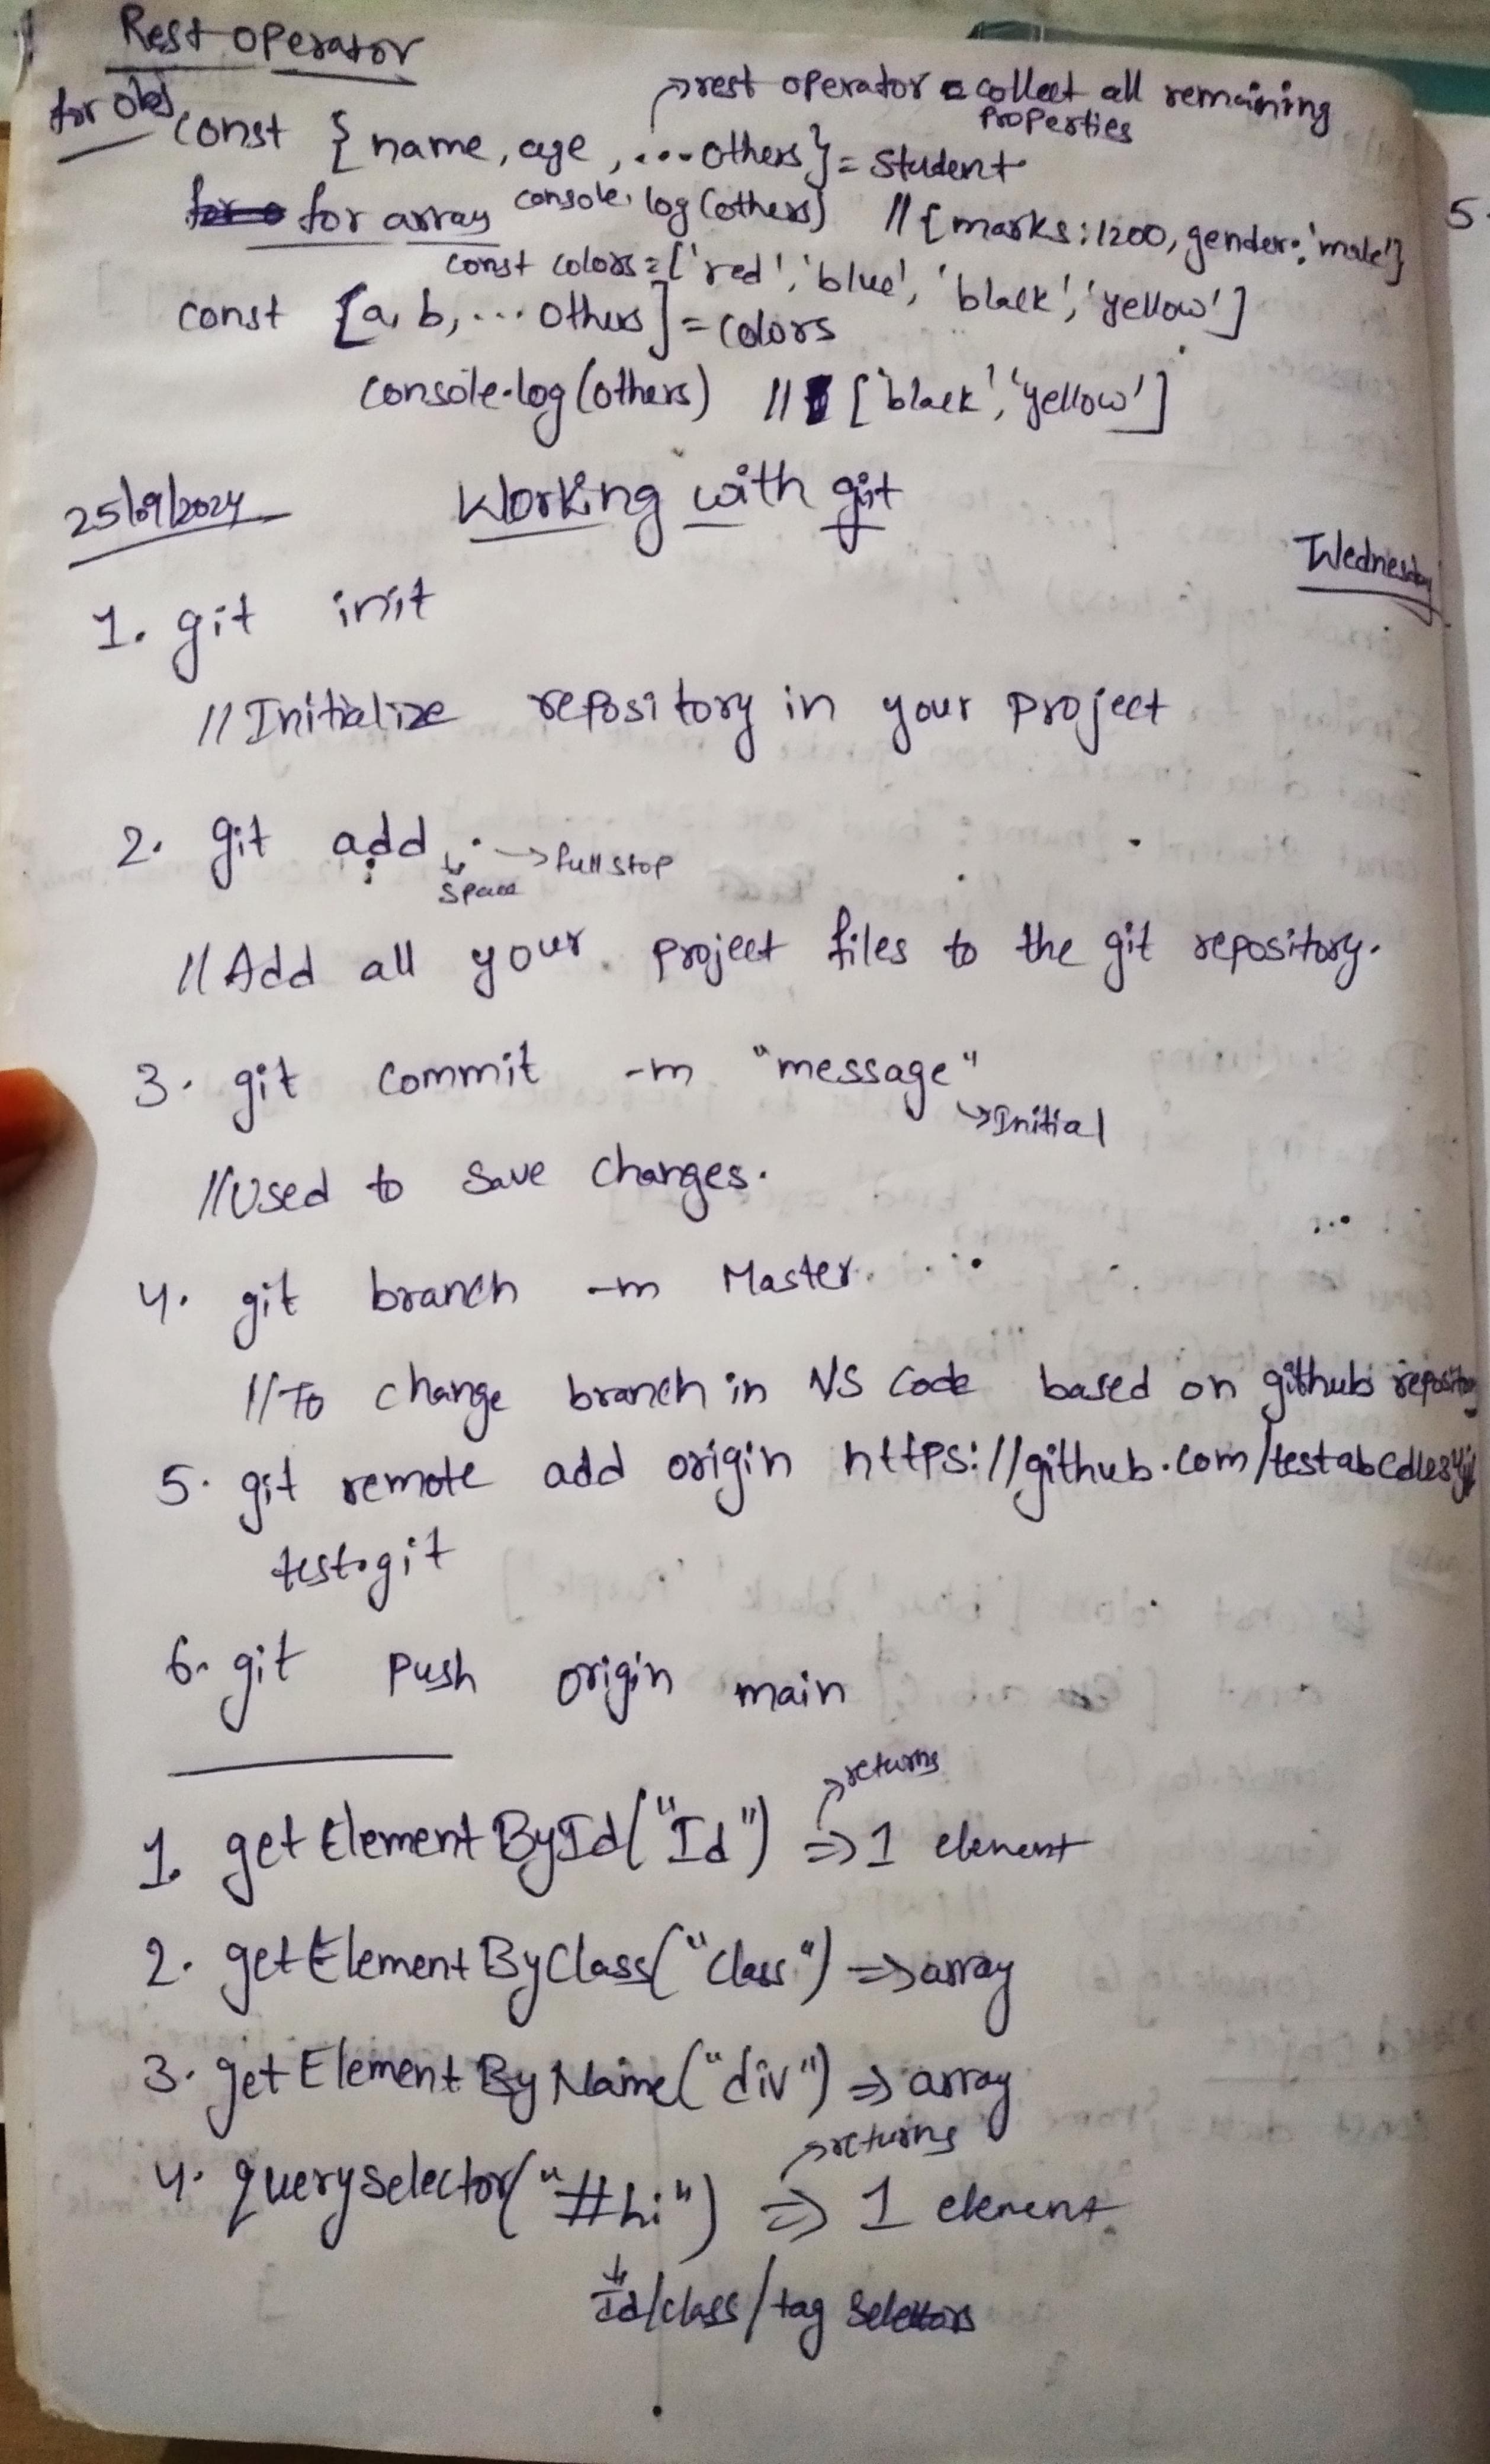 Rest Operator
for obj
rest operator = collect all remaining
properties
const { name, age, ...others} = Student
for array console.log(others) // {marks:1200, gender:'male'}
const colors = ['red', 'blue', 'black', 'yellow']
const [a, b, ... others] = colors
console.log(others) // ['black', 'yellow']
25/09/2024 Working with git
Wednesday
1. git init
// Initialize repository in your project
2. git add . → full stop
space
// Add all your project files to the git repository.
3. git commit -m "message"
→ Initial
// Used to save changes.
4. git branch -m Master.
// To change branch in VS Code based on github repository
5. git remote add origin https://github.com/
test.git
6. git push origin main
returns
1. getElementById("Id") => 1 element
2. getElementByClass("class") => array
3. getElementByName("div") => array
returns
4. queryselector("#hi") => 1 element
Id/class/tag Selectors
5.